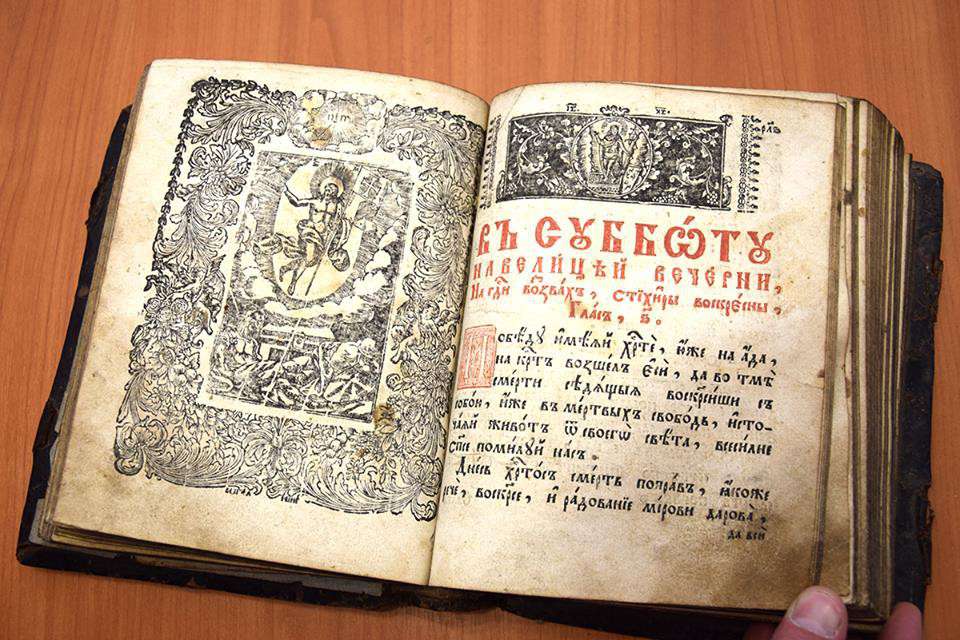 ІС ХС
ВЪ СУББѠТУ
НА ВЕЛИЦѢЙ ВЕЧЕРНИ,
На гдⷭ҇и воззвахъ, стїхиры воскрⷭ҇ны,
Гласъ, в҃.
Побѣду имѣѧй хрⷭ҇тѐ, ꙗже на ада,
на крⷭ҇тъ возшелъ Єсѝ, да во тмѣ
смерти сѣдѧщыѧ воскресиши съ
собою, иже въ мертвыхъ свободь, исто-
чаѧй животъ ѿ своегѡ свѣта, всесилне
Сп҃се помилуй насъ.
Днесь хрⷭ҇тосъ смерть поправъ, ꙗкоже
речѐ, воскр҃се, и радованїе мірови дарова̀,
да вси